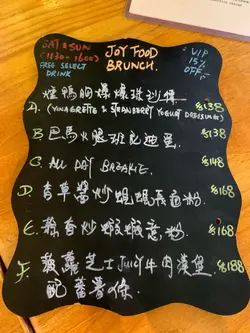 SAT & SUN
(1130-1600)
FREE SELECT
DRINK
JOY FOOD
BRUNCH.
VIP
15%
OFF
煙鴨胸爆爆珠沙律
A. (VINAGRETTE & STRAWBERRY YOGURT DRESSING) $138
B 巴馬火腿班尼迪蛋 $138
C. ALL DAY BREAKIE. $148
D. 青草醬炒蜆蜆長意粉 $168
E. 蒜香炒蝦蝦意粉 $168
F. 菠蘿芝士Juicy牛肉漢堡 $188
配蕃薯條